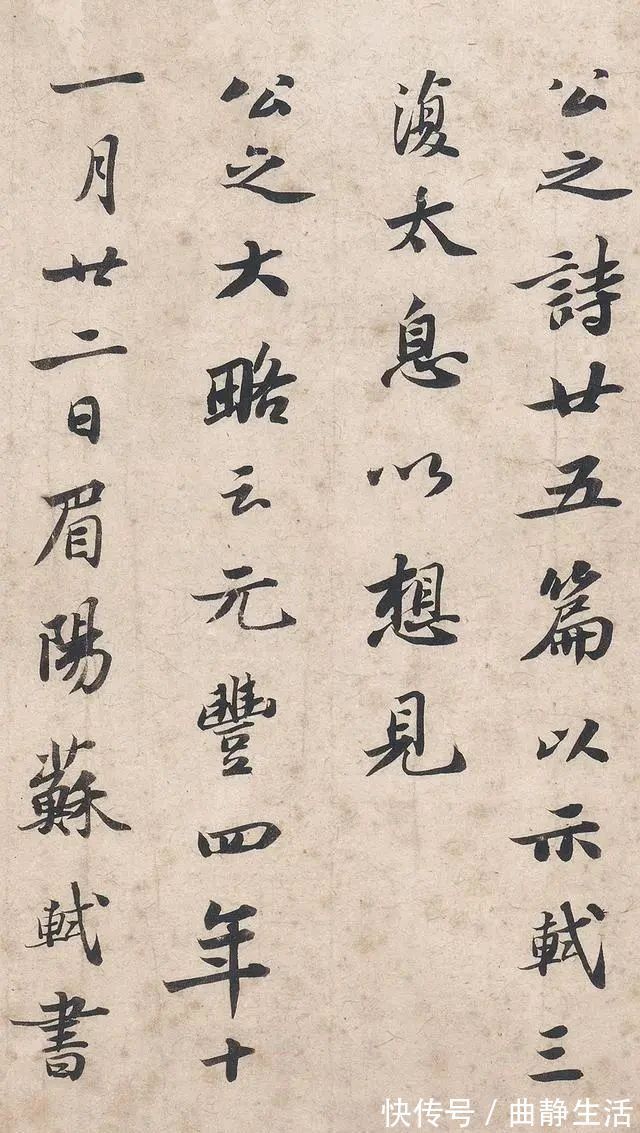 公之詩廿五篇以示軾三
復太息以想見
公之大略云元豐四年十
一月廿二日眉陽蘇軾書
快传号／曲静生活